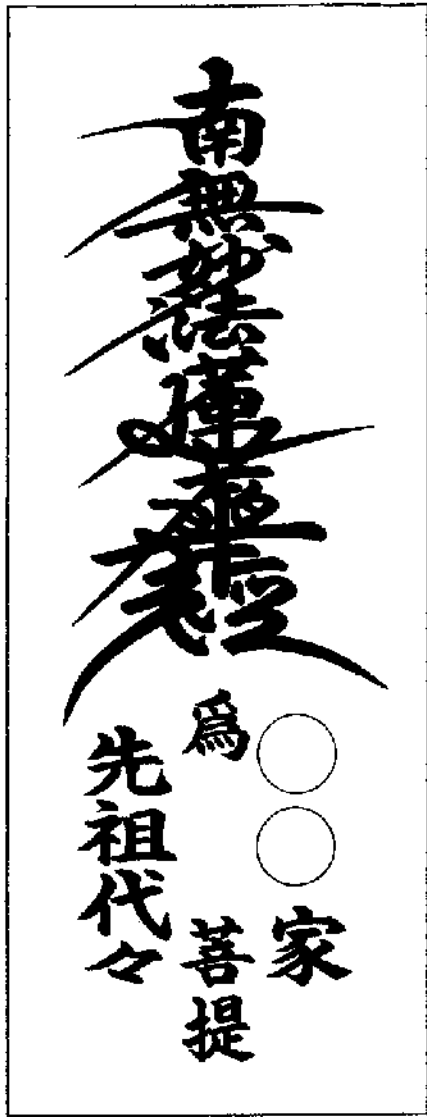 南無妙法蓮華經
為
○○家
先祖代々
菩提